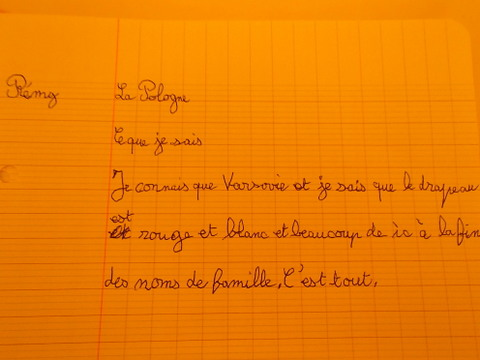 Rémy
La Pologne
Ce que je sais
Je connais que Varsovie et je sais que le drapeau
est rouge et blanc et beaucoup de ic à la fin
des noms de famille. C'est tout.